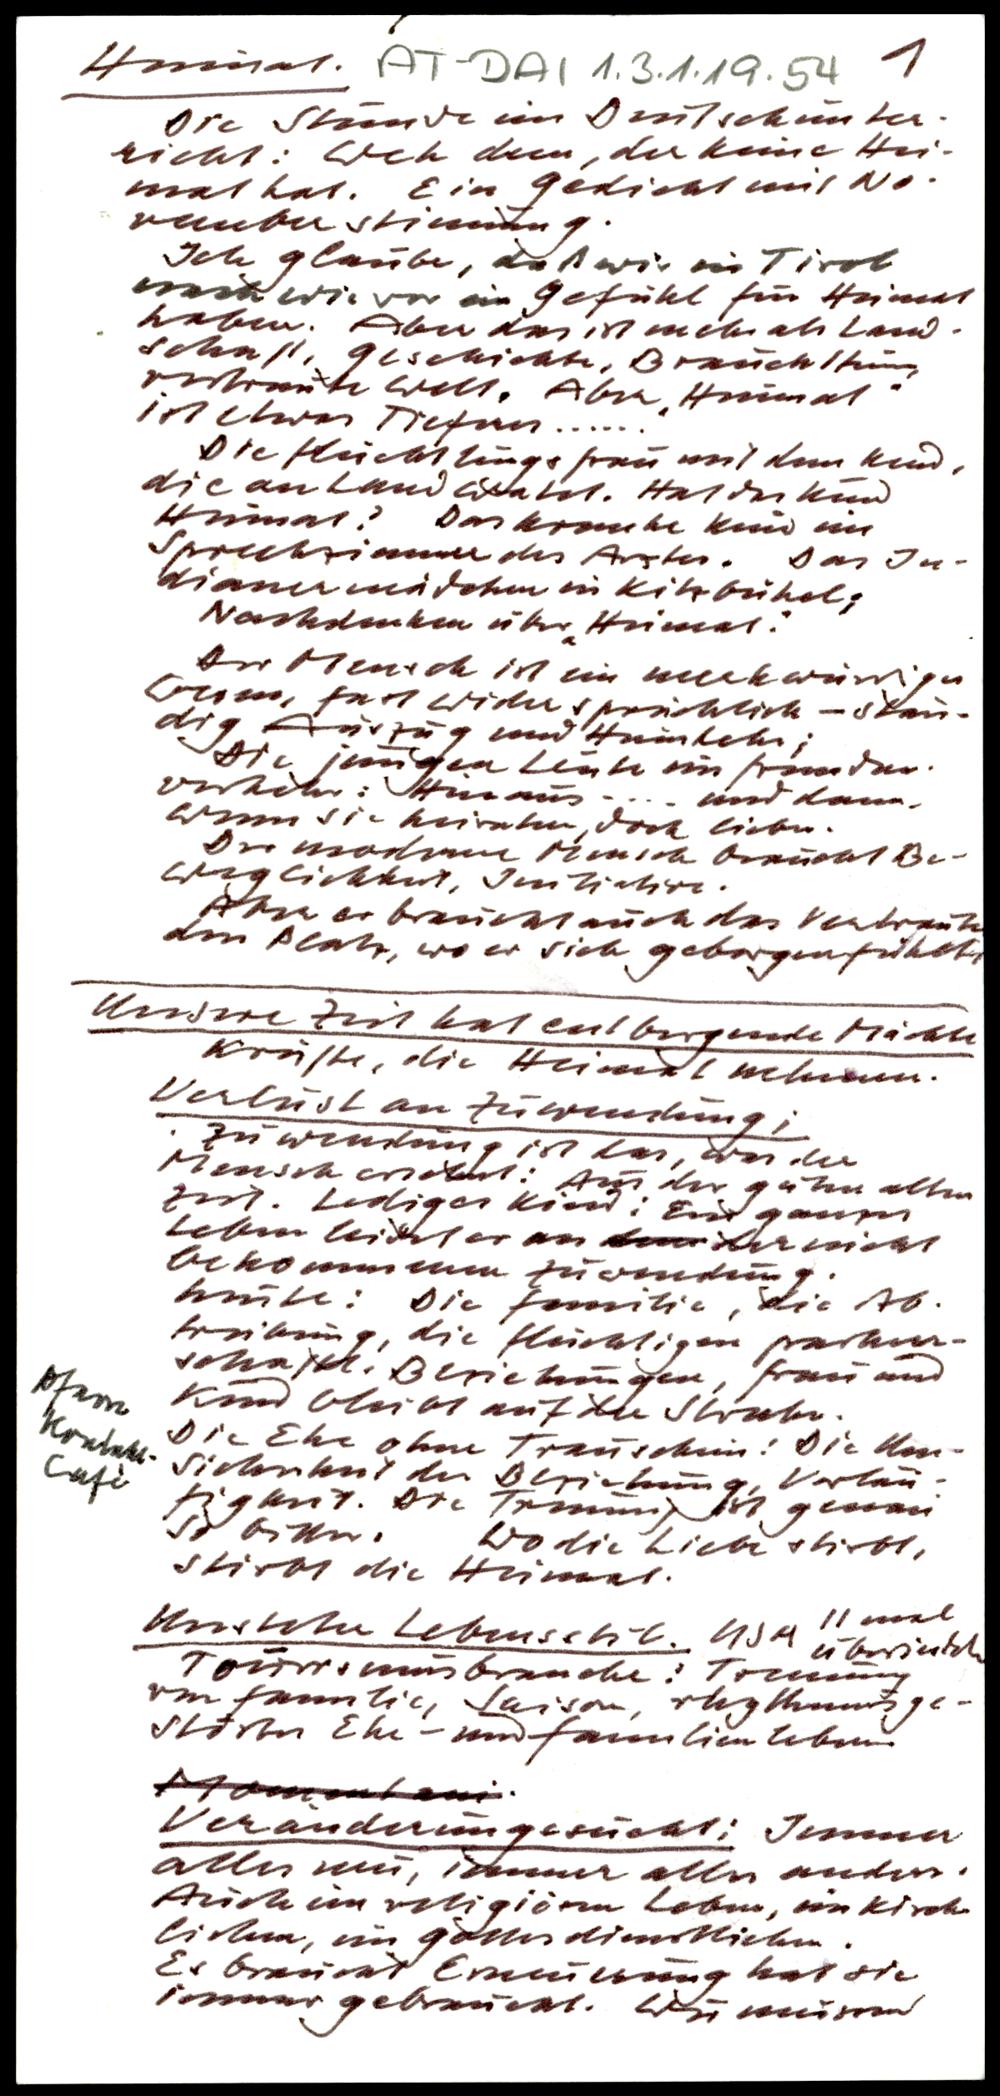 Heimat. AT-DAI 1.3.1.19.54 1
Die Stunde im Deutschunter-
richt: Weh dem, der keine Hei-
mat hat. Ein Gedicht mit No-
vemberstimmung.
Ich glaube, daß wir in Tirol
nach wie vor ein Gefühl für Heimat
haben. Aber das ist mehr als Land-
schaft, Geschichte, Brauchtum,
vertraute Welt. Aber "Heimat"
ist etwas Tieferes......
Die Flüchtlingsfrau mit dem Kind,
die an Land watet. Hat das Kind
Heimat? Das kranke Kind im
Sprechzimmer des Arztes. Das In-
dianermädchen in Kitzbühel;
Nachdenken über "Heimat."
Der Mensch ist ein merkwürdiges
Wesen, fast widersprüchlich - stän-
dig Auszug und Heimkehr;
Die jungen Leute im Fremden-
verkehr: Hinaus .... und dann,
wenn sie heiraten, doch lieber.
Der moderne Mensch braucht Be-
weglichkeit, Initiative.
Aber er braucht auch das Vertraute
den Platz, wo er sich geborgen fühlt
Unsere Zeit hat entbergende Mächte
Kräfte, die Heimat nehmen.
Verlust an Zuwendung;
Zuwendung ist das, was der
Mensch ersehnt: Aus der guten alten
Zeit. Lediges Kind: Ein ganzes
Leben leidet er an der nicht
bekommenen Zuwendung.
heute: Die Familie, die Ab-
treibung, die flüchtigen partner-
schaftl. Beziehungen, Frau und
Kind bleibt auf der Strecke.
Pfarre
Kontakt-
Café
Die Ehe ohne Trauschein: Die Un-
sicherheit der Beziehung, Vorläu-
figkeit. Die Trennung ist genau
so bitter. Wo die Liebe stirbt,
stirbt die Heimat.
Unsteter Lebensstil. USA 11 mal
übersiedeln
Tourismusbranche: Trennung
von Familie, Saison, rhythmusge-
störtes Ehe- und Familienleben
Momentani.
Veränderungssucht: Immer
alles neu, immer alles anders.
Auch im religiösen Leben, im kirch-
lichen, im gottesdienstlichen.
Es braucht Erneuerung hat sie
immer gebraucht. Wir müssen